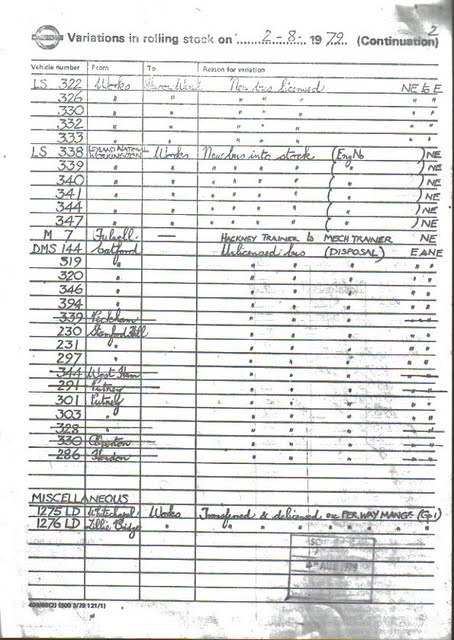 2
Variations in rolling stock on 2-8-1979 (Continuation)
Vehicle number From To Reason for variation
LS 322 Works New bus licensed NE to E
326 " " " " " " "
330 " " " " " " "
332 " " " " " " "
333 " " " " " " "
LS 338 LEYLAND NATIONAL WORKINGTON Works New bus into stock (Eng No ) NE
339 " " " " " " ( " ) NE
340 " " " " " " ( " ) NE
341 " " " " " " ( " ) NE
344 " " " " " " ( " ) NE
347 " " " " " " ( " ) NE
M 7 Fulwell — HACKNEY TRAINER to MECH TRAINER NE
DMS 144 Catford Unlicensed bus (DISPOSAL) E A NE
319 " " " " " "
320 " " " " " "
346 " " " " " "
394 " " " " " "
339 Peckham " " " " "
230 Stamford Hill " " " " "
231 " " " " " "
297 " " " " " "
344 West Ham " " " " "
291 Putney " " " " "
301 Putney " " " " "
303 " " " " " "
328 " " " " "
330 Clapton " " " " "
286 Hendon " " " " "
MISCELLANEOUS
1275 LD Works Transferred & delicensed PER WAY MANGR (Gp 1)
1276 LD Lillie Bridge " " " " " " " "
AUG 1979